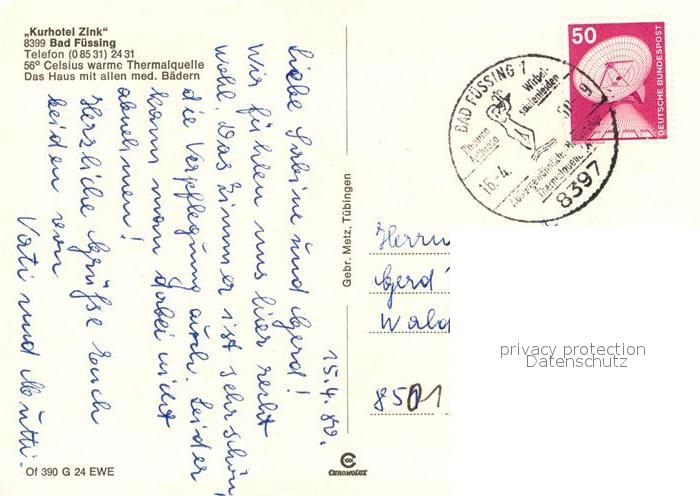 „Kurhotel Zink"
8399 Bad Füssing
Telefon (0 85 31) 24 31
56º Celsius warme Thermalquelle
Das Haus mit allen med. Bädern
15.4.80.
Liebe Sabine und Gerd!
Wir fühlen uns hier recht
wohl. Das Zimmer ist sehr schön,
die Verpflegung auch. Leider
kann man dabei nicht
abnehmen!
Herzliche Grüße Euch
beiden von
Vati und Mutti.
Of 390 G 24 EWE
Gebr. Metz, Tübingen
CHROMOLUX
50
DEUTSCHE BUNDESPOST
BAD FÜSSING 1
Wirbel-
säulenleiden
Rheuma
Arthrose
16.-4.
8397
Herrn
Gerd
Wald
8501
privacy protection
Datenschutz